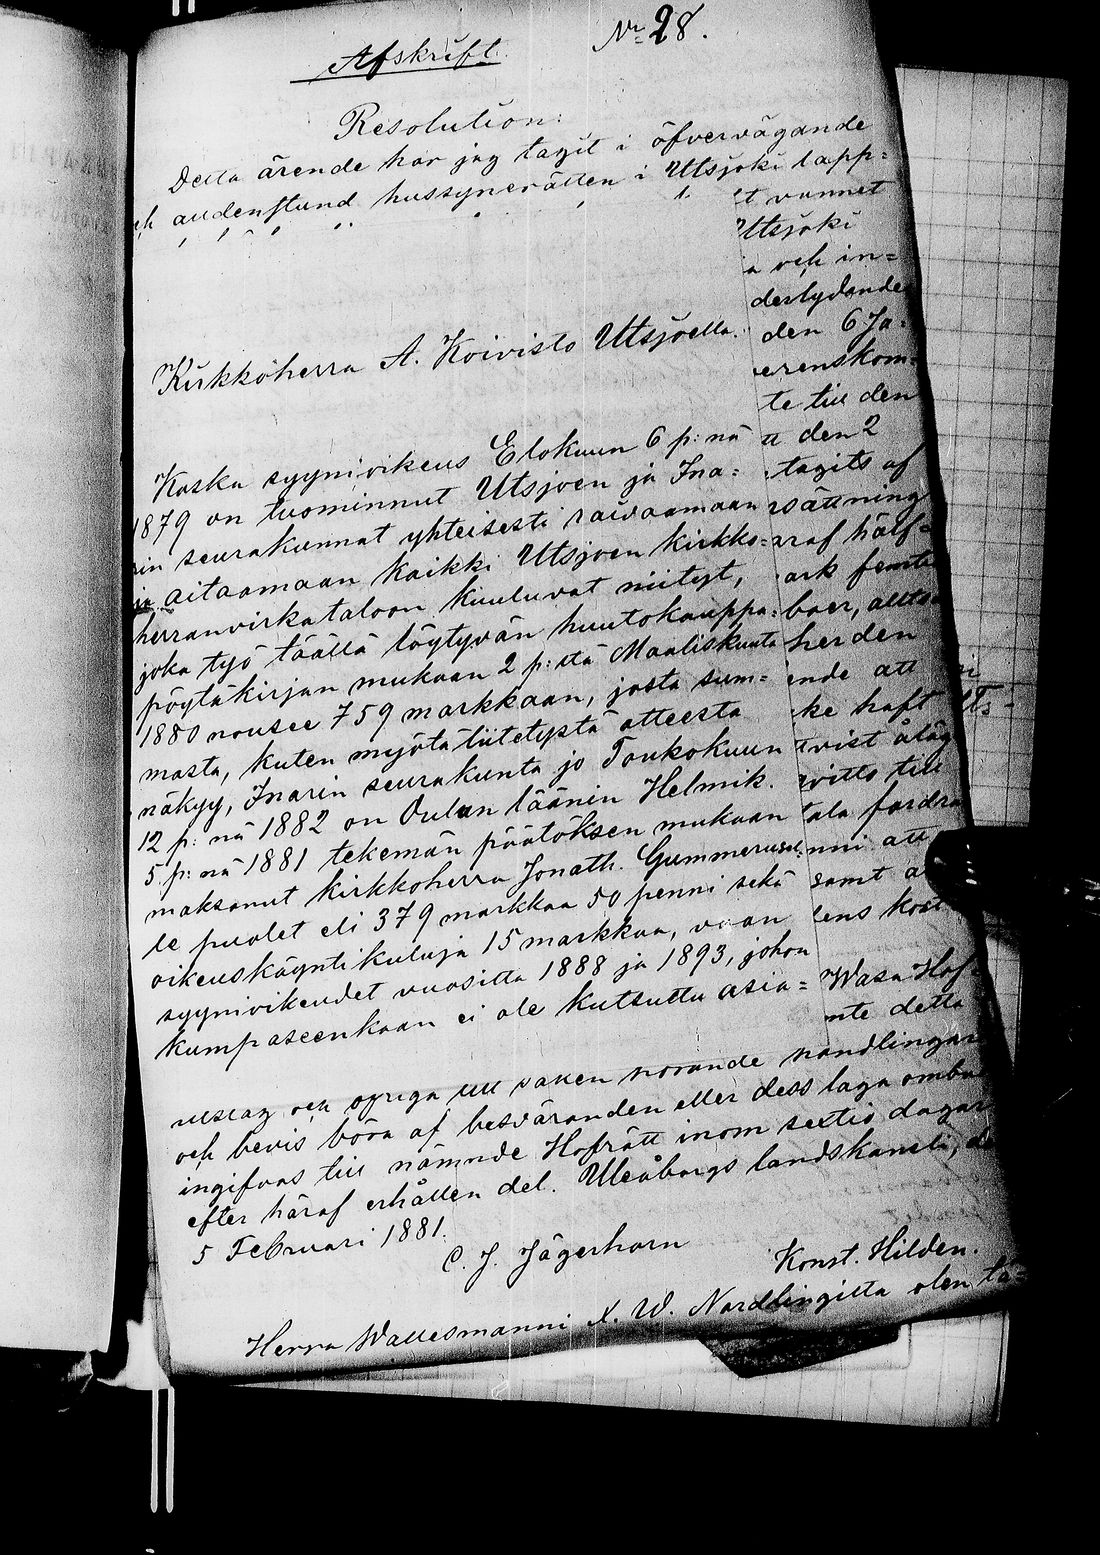 Nr 28.
Afskrift.
Resolution:
Detta ärende har jag tagit i öfvervägande
och
enär
hussynerätten i Utsjoki lapp=
t vunnet
Utsjoki
a och in=
derlydande
den 6 Ja=
erenskom=
te till den
tt den 2
tagits af
rsättning
half=
ark femtio
boer, alltså
her den
ende att
ke haft
tvist åläg
witts till
tala fordra
nni att
samt
ens kost
Wasa Hof=
mte detta
Kirkkoherra A. Koivisto Utsjoella.
Koska syynioikeus Elokuun 6 p:nä
1879 on tuominnut Utsjoen ja Ina=
rin seurakunnat yhteisesti raivaamaan
ja aitaamaan kaikki Utsjoen kirkko=
herranvirkataloon kuuluvat niityt,
joka työ täällä löytyvän huutokauppa=
pöytäkirjan mukaan 2 p:stä Maaliskuuta
1880 nousee 759 markkaan, josta sum=
masta, kuten myötäliitetystä atteesta
näkyy, Inarin seurakunta jo Toukokuun
12 p:nä 1882 on Oulun läänin Helmik.
5 p:nä 1881 tekemän päätöksen mukaan
maksanut kirkkoherra Jonath. Gummeruksel
le puolet eli 379 markkaa 50 penni sekä
oikeuskäyntikuluja 15 markkaa, vaan
syynioikeudet vuosilta 1888 ja 1893, johon
kumpaseenkaan ei ole kutsuttu asia=
utslag och öfriga till saken hörande handlingar
och bevis böra af besväranden eller dess laga ombud
ingifvas till nämnde Hofrätt inom sextio dagar
efter häraf erhållen del. Uleåborgs landskansli, den
5 Februari 1881.
C. J. Jägerhorn
Konst. Hilden.
Herra Wallesmanni K. W. Nordlingilta olen tä=